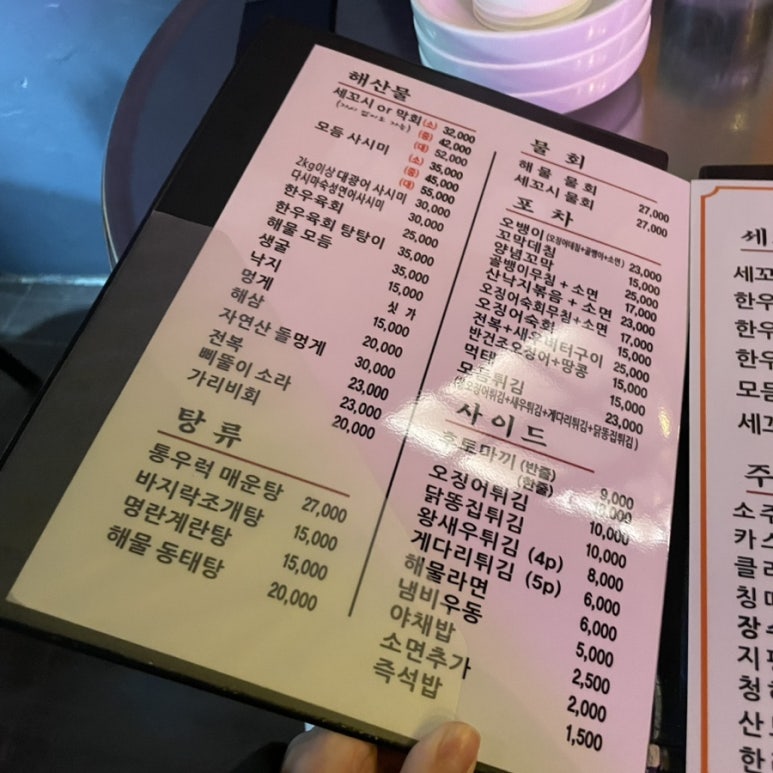 해산물
세꼬시 or 막회 (소) 32,000
(중) 42,000
(대) 52,000
모듬 사시미 (소) 35,000
(중) 45,000
(대) 55,000
2kg이상 대광어 사시미 30,000
다시마숙성연어사시미 30,000
한우육회 25,000
한우육회 탕탕이 35,000
해물 모듬 35,000
생굴 15,000
낙지 싯가
멍게 15,000
해삼 20,000
자연산 돌멍게 30,000
전복 23,000
삐뚤이 소라 23,000
가리비회 20,000
탕류
통우럭 매운탕 27,000
바지락조개탕 15,000
명란계란탕 15,000
해물 동태탕 20,000
물회
해물 물회 27,000
세꼬시 물회 27,000
포차
오뱅이 (오징어데침+골뱅이+소면) 23,000
꼬막데침 15,000
양념꼬막 25,000
골뱅이무침 + 소면 17,000
산낙지볶음 + 소면 23,000
오징어숙회무침+소면 17,000
오징어숙회 15,000
전복+새우버터구이 25,000
반건조오징어+땅콩 15,000
먹태 15,000
모듬튀김 23,000
(오징어튀김+새우튀김+게다리튀김+닭똥집튀김)
사이드
후토마끼 (반줄) 9,000
(한줄)
오징어튀김 10,000
닭똥집튀김 10,000
왕새우튀김 (4p) 8,000
게다리튀김 (5p) 6,000
해물라면 6,000
냄비우동 5,000
야채밥 2,500
소면추가 2,000
즉석밥 1,500
세
세꼬
한우
한우
한우
모듬
세꼬
주
소주
카스
장수
청하